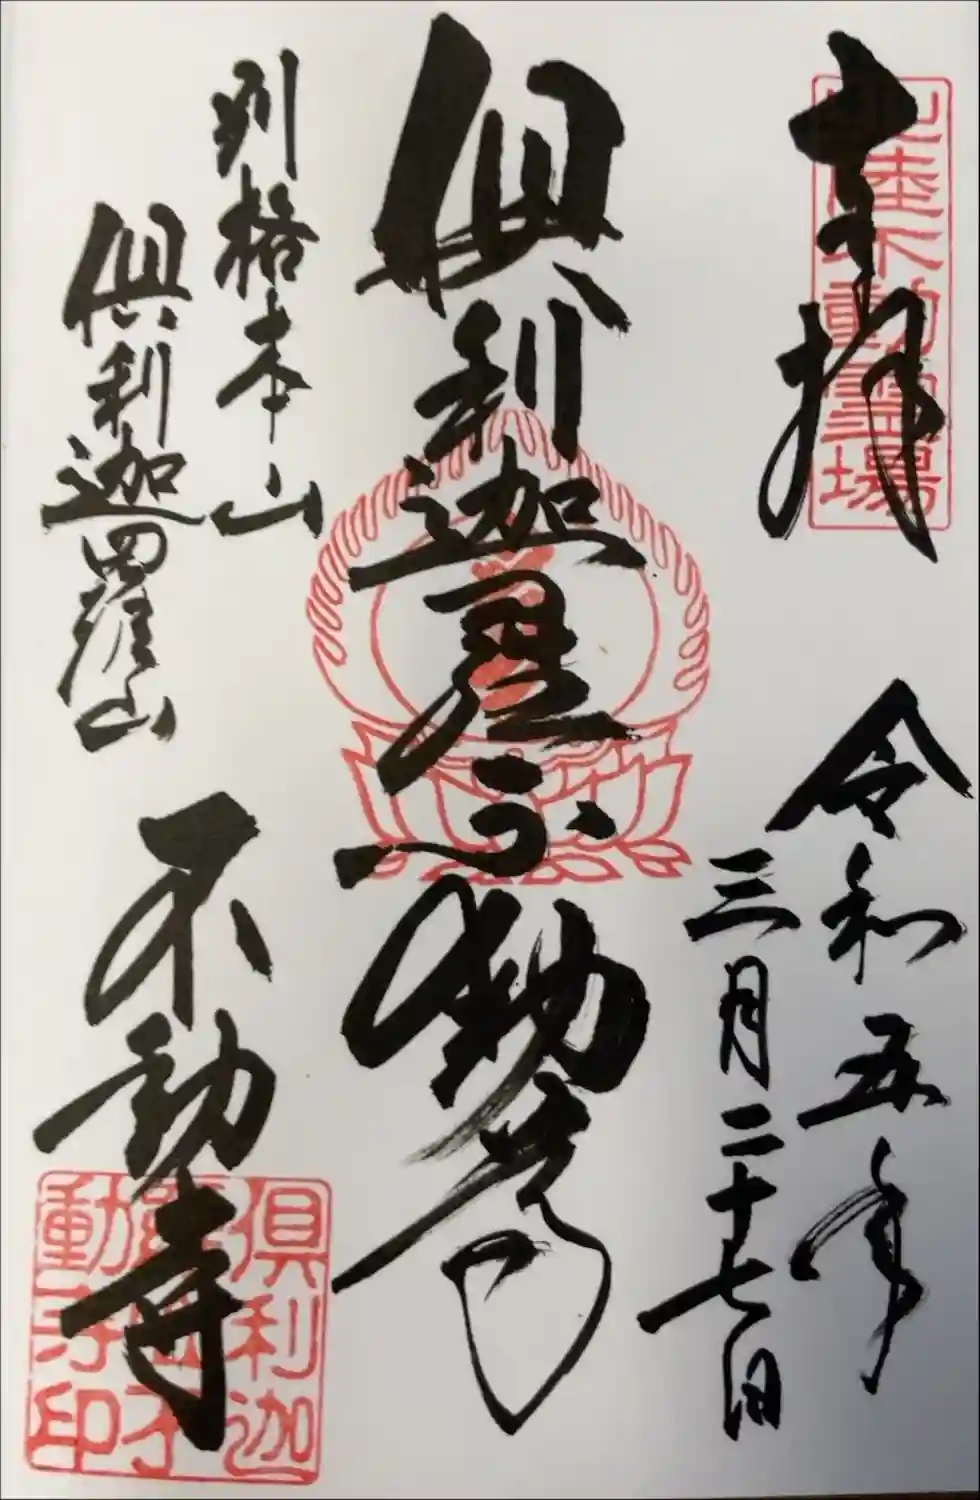 奉拝
北陸不動霊場
令和五年
三月二十七日
倶利迦羅不動尊
別格本山
倶利迦羅山
不動寺
倶利迦
羅山不
動寺印